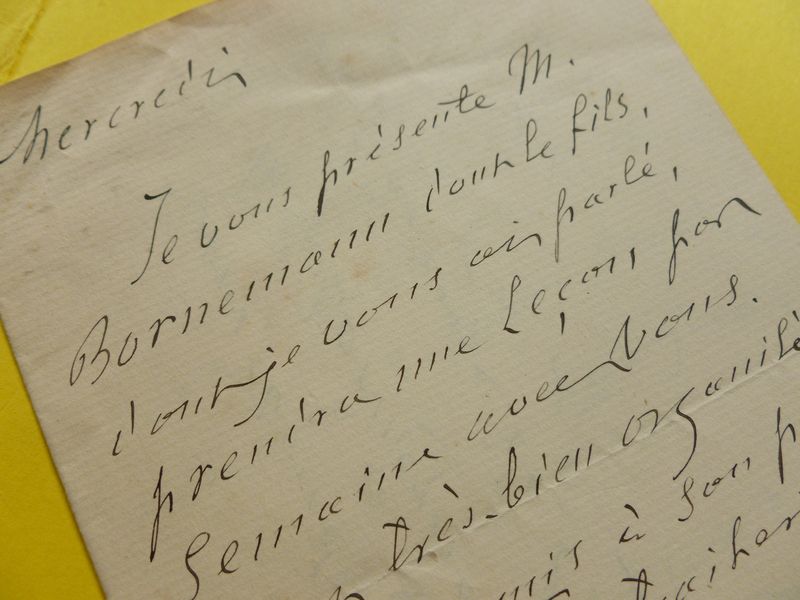 Mercredi
Je vous présente M.
Bornemann dont le fils,
dont je vous ai parlé,
prendra une Leçon par
Semaine avec Vous.
très-bien organisé
mis à son p
traiter